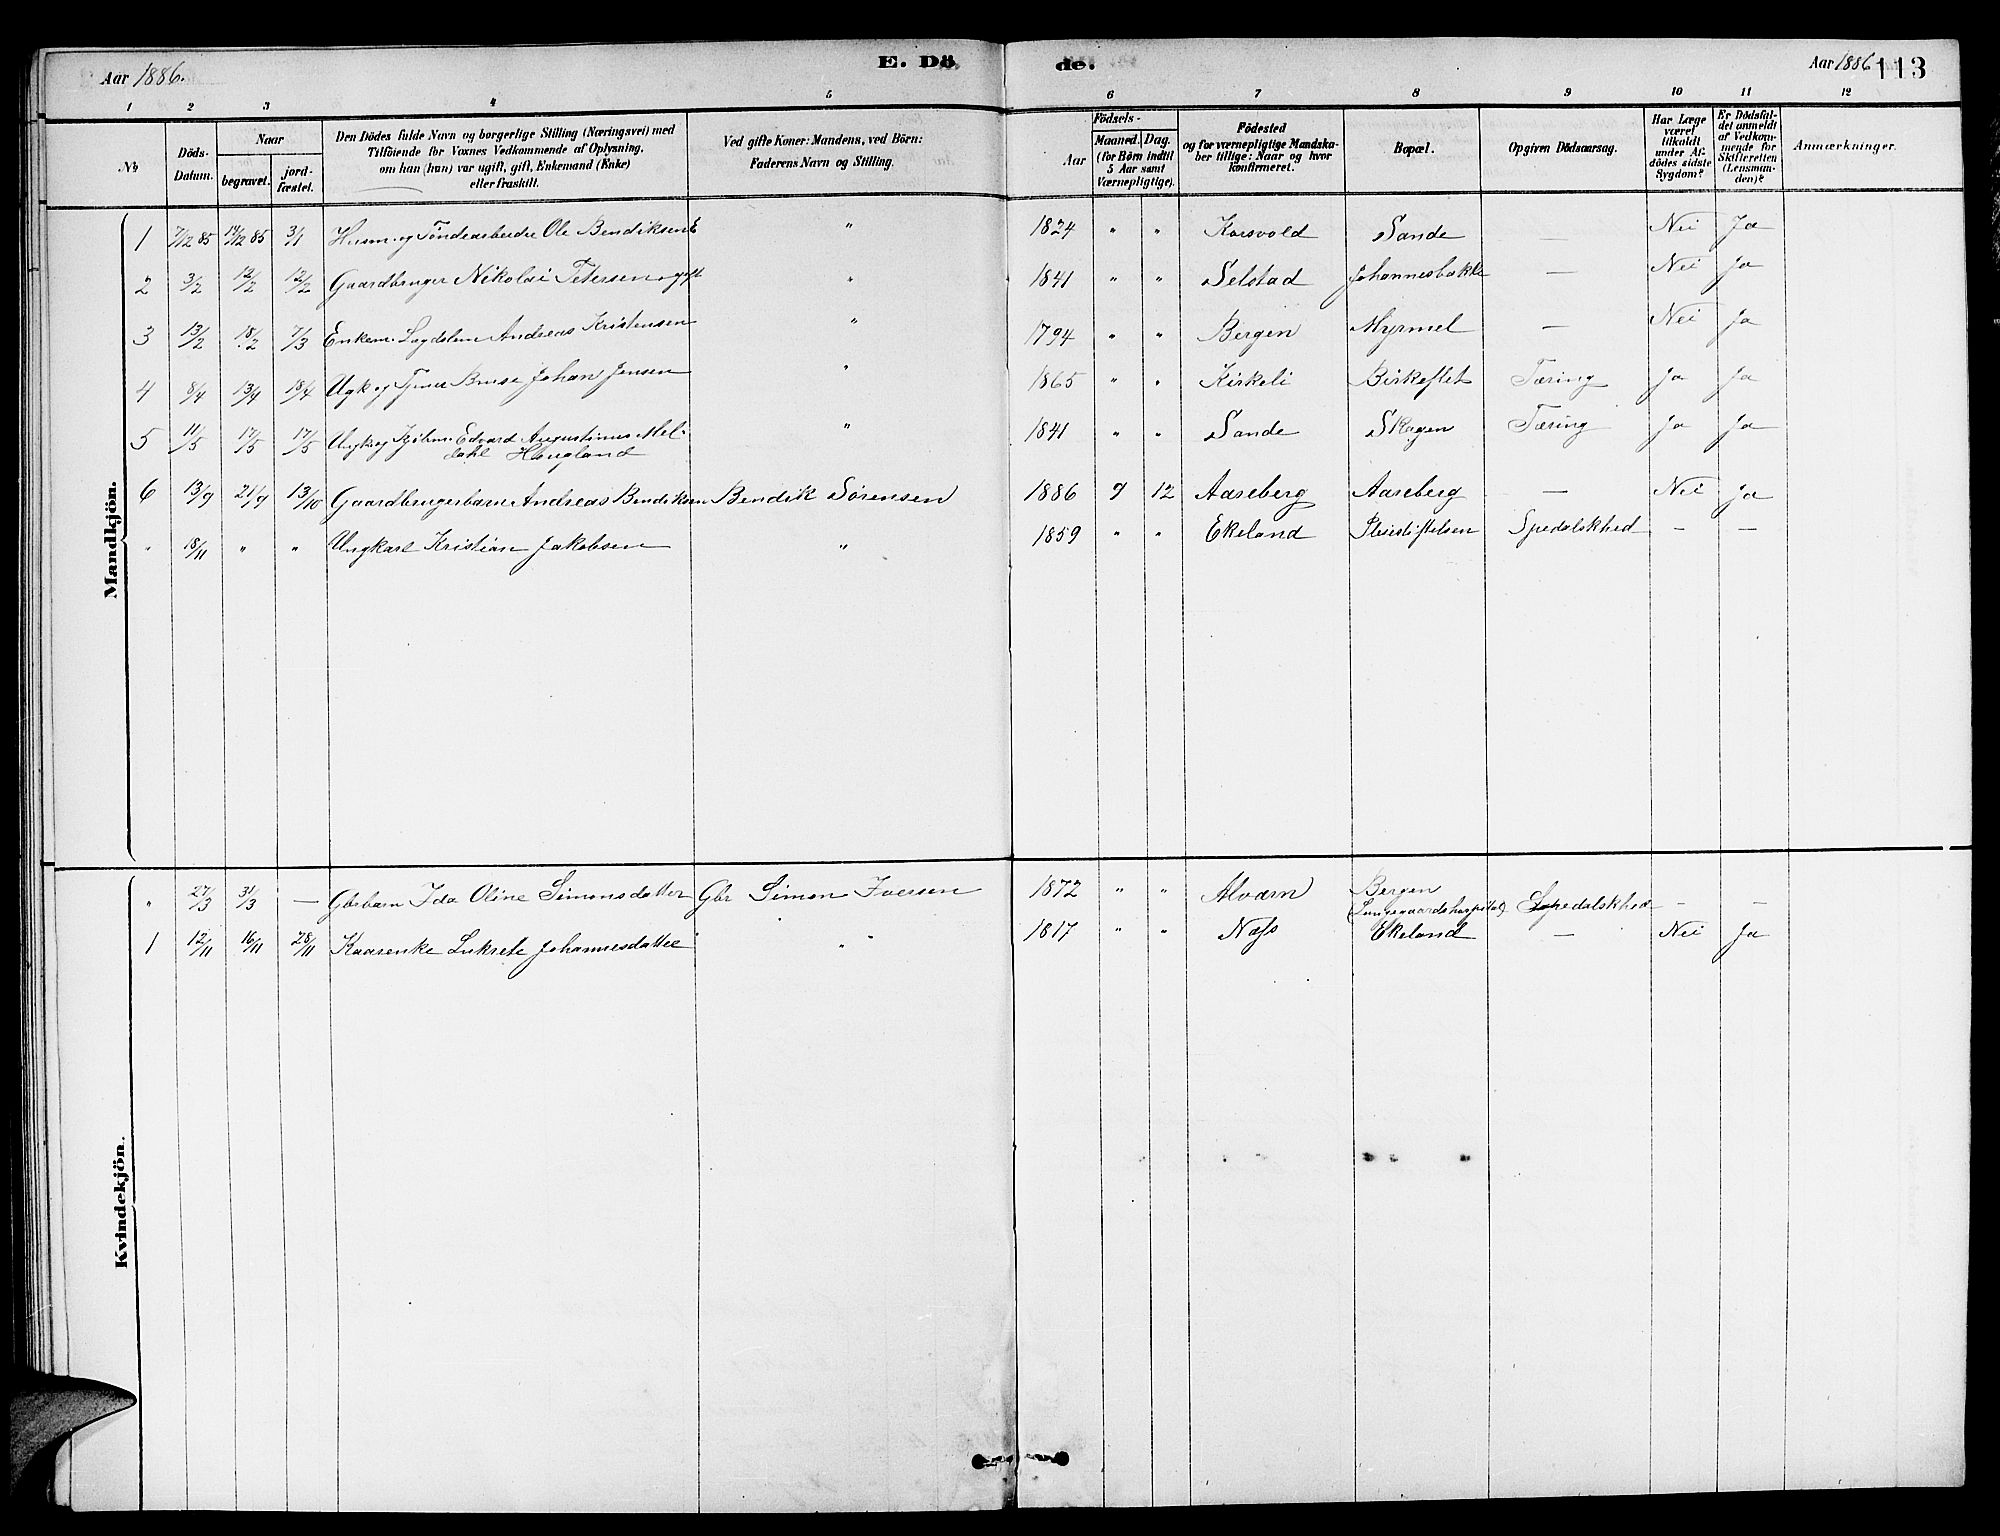 Aar 1886.
E. Dö de.
Aar 1886 113
1 2 3 4 5 6 7 8 9 10 11 12
No
Döds-Datum.
Naar
begravet. jordfæstet.
Den Dödes fulde Navn og borgerlige Stilling (Næringsvei) med
Tilföiende for Voxnes Vedkommende af Oplysning.
om han (hun) var ugift, gift, Enkemand (Enke)
eller fraskilt.
Ved gifte Koner: Mandens, ved Börn:
Faderens Navn og Stilling.
Födsels-
Aar
Maaned. Dag.
(for Börn indtil
5 Aar samt
Værnepligtige).
Födested
og for værnepligtige Mandska-
ber tillige: Naar og hvor
konfirmeret.
Bopæl.
Opgiven Dödsaarsag.
Har Læge
været
tilkaldt
under Af-
dödes sidste
Sygdom?
Er Dödsfal-
det anmeldt
af Vedkom-
mende for
Skifteretten
(Lensman-
den)?
Anmærkninger.
Mandkjön.
1 7/12 85 14/12 85 3/1 Husm. og Töndearbeider Ole Bendiksen E " 1824 " " Korsvold Sande — Nei Ja
2 3/2 12/2 12/2 Gaardbruger Nikolai Petersen gift " 1841 " " Selstad Johannesbakke — Nei Ja
3 13/2 18/2 7/3 Enkem. Lægdslem Andreas Kristensen " 1794 " " Bergen Myrmel — Nei Ja
4 8/4 13/4 18/4 Ugk og Tjener Johan Jensen " 1865 " " Kirkeli Birkeflet Tæring Ja Ja
5 11/5 17/5 17/5 Ungk og Edvard Augustinus Mel-
dahl Haugland " 1841 " " Sande Skagen Tæring Ja Ja
6 13/9 21/9 13/10 Gaardbrugerbarn Andreas Bendiksen Bendik Sörensen 1886 9 12 Aaseberg Aaseberg — Nei Ja
" 18/11 " " Ungkarl Kristian Jakobsen " 1859 " " Ekeland Pleiestiftelsen Spedalskhed — —
Kvindekjön.
" 27/3 31/3 — Gbrbarn Ida Oline Simonsdatter Gbr Simon Iversen 1872 " " Alværn Bergen
(Lungegaardshospitalet) Spedalskhed — —
1 12/11 16/11 28/11 Kaarenke Lukrete Johannesdatter " " 1817 " " Næss Ekeland — Nei Ja